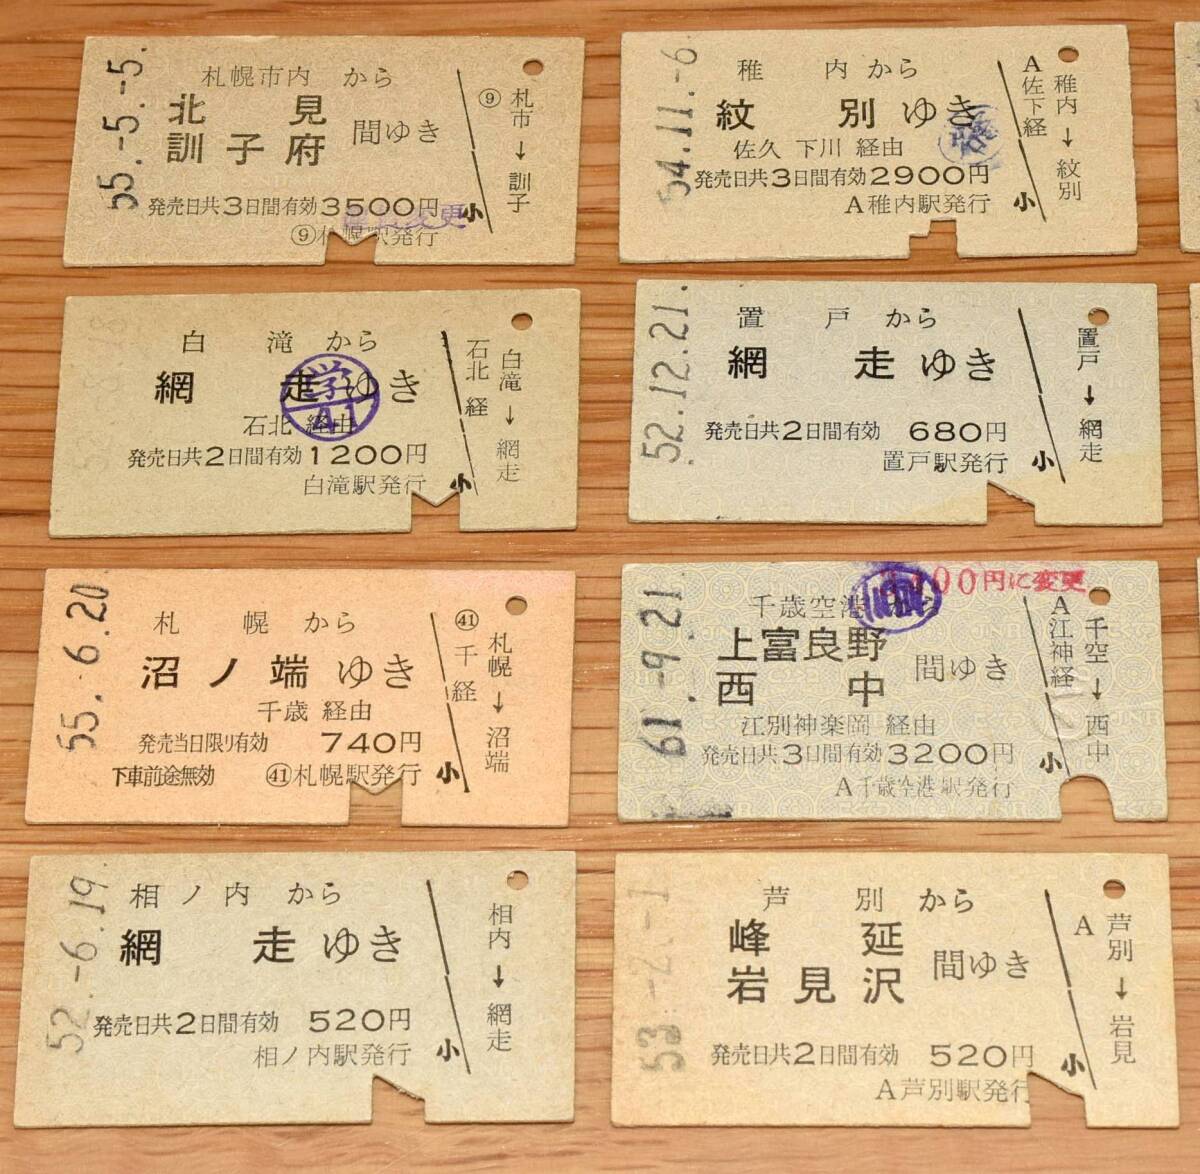 55.-5.-5.
札幌市内 から
北見
訓子府 間ゆき
発売日共3日間有効3500円
⑨札幌駅発行
⑨
札市→訓子
小
54.11.-6
稚内から
紋別ゆき
佐久 下川 経由
発売日共3日間有効2900円
A稚内駅発行
A佐下経
稚内→紋別
小
白滝から
網走ゆき
学
41
石北 経由
発売日共2日間有効1200円
白滝駅発行
石北経
白滝→網走
小
52.12.21.
置戸から
網走ゆき
発売日共2日間有効 680円
置戸駅発行
置戸→網走
小
55.-6.20
札幌から
沼ノ端ゆき
千歳 経由
発売当日限り有効 740円
下車前途無効 ㊶札幌駅発行
㊶千経
札幌→沼端
小
61.-9.21
00円に変更
千歳空港から
上富良野
西中 間ゆき
江別神楽岡 経由
発売日共3日間有効3200円
A千歳空港駅発行
A江神経
千空→西中
小
52.-6.19.
相ノ内 から
網走ゆき
発売日共2日間有効 520円
相ノ内駅発行
相内→網走
小
53.-2.-1
芦別から
峰延
岩見沢 間ゆき
発売日共2日間有効 520円
A芦別駅発行
A
芦別→岩見
小